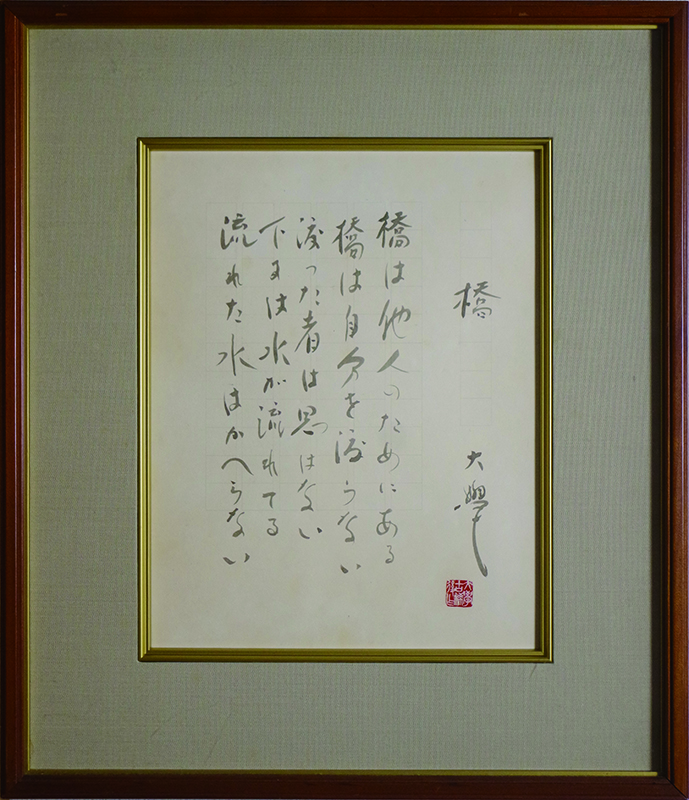 橋
大學
橋は他人のためにある
橋は自分を渡らない
渡つた者は思はない
下には水が流れてる
流れた水はかへらない